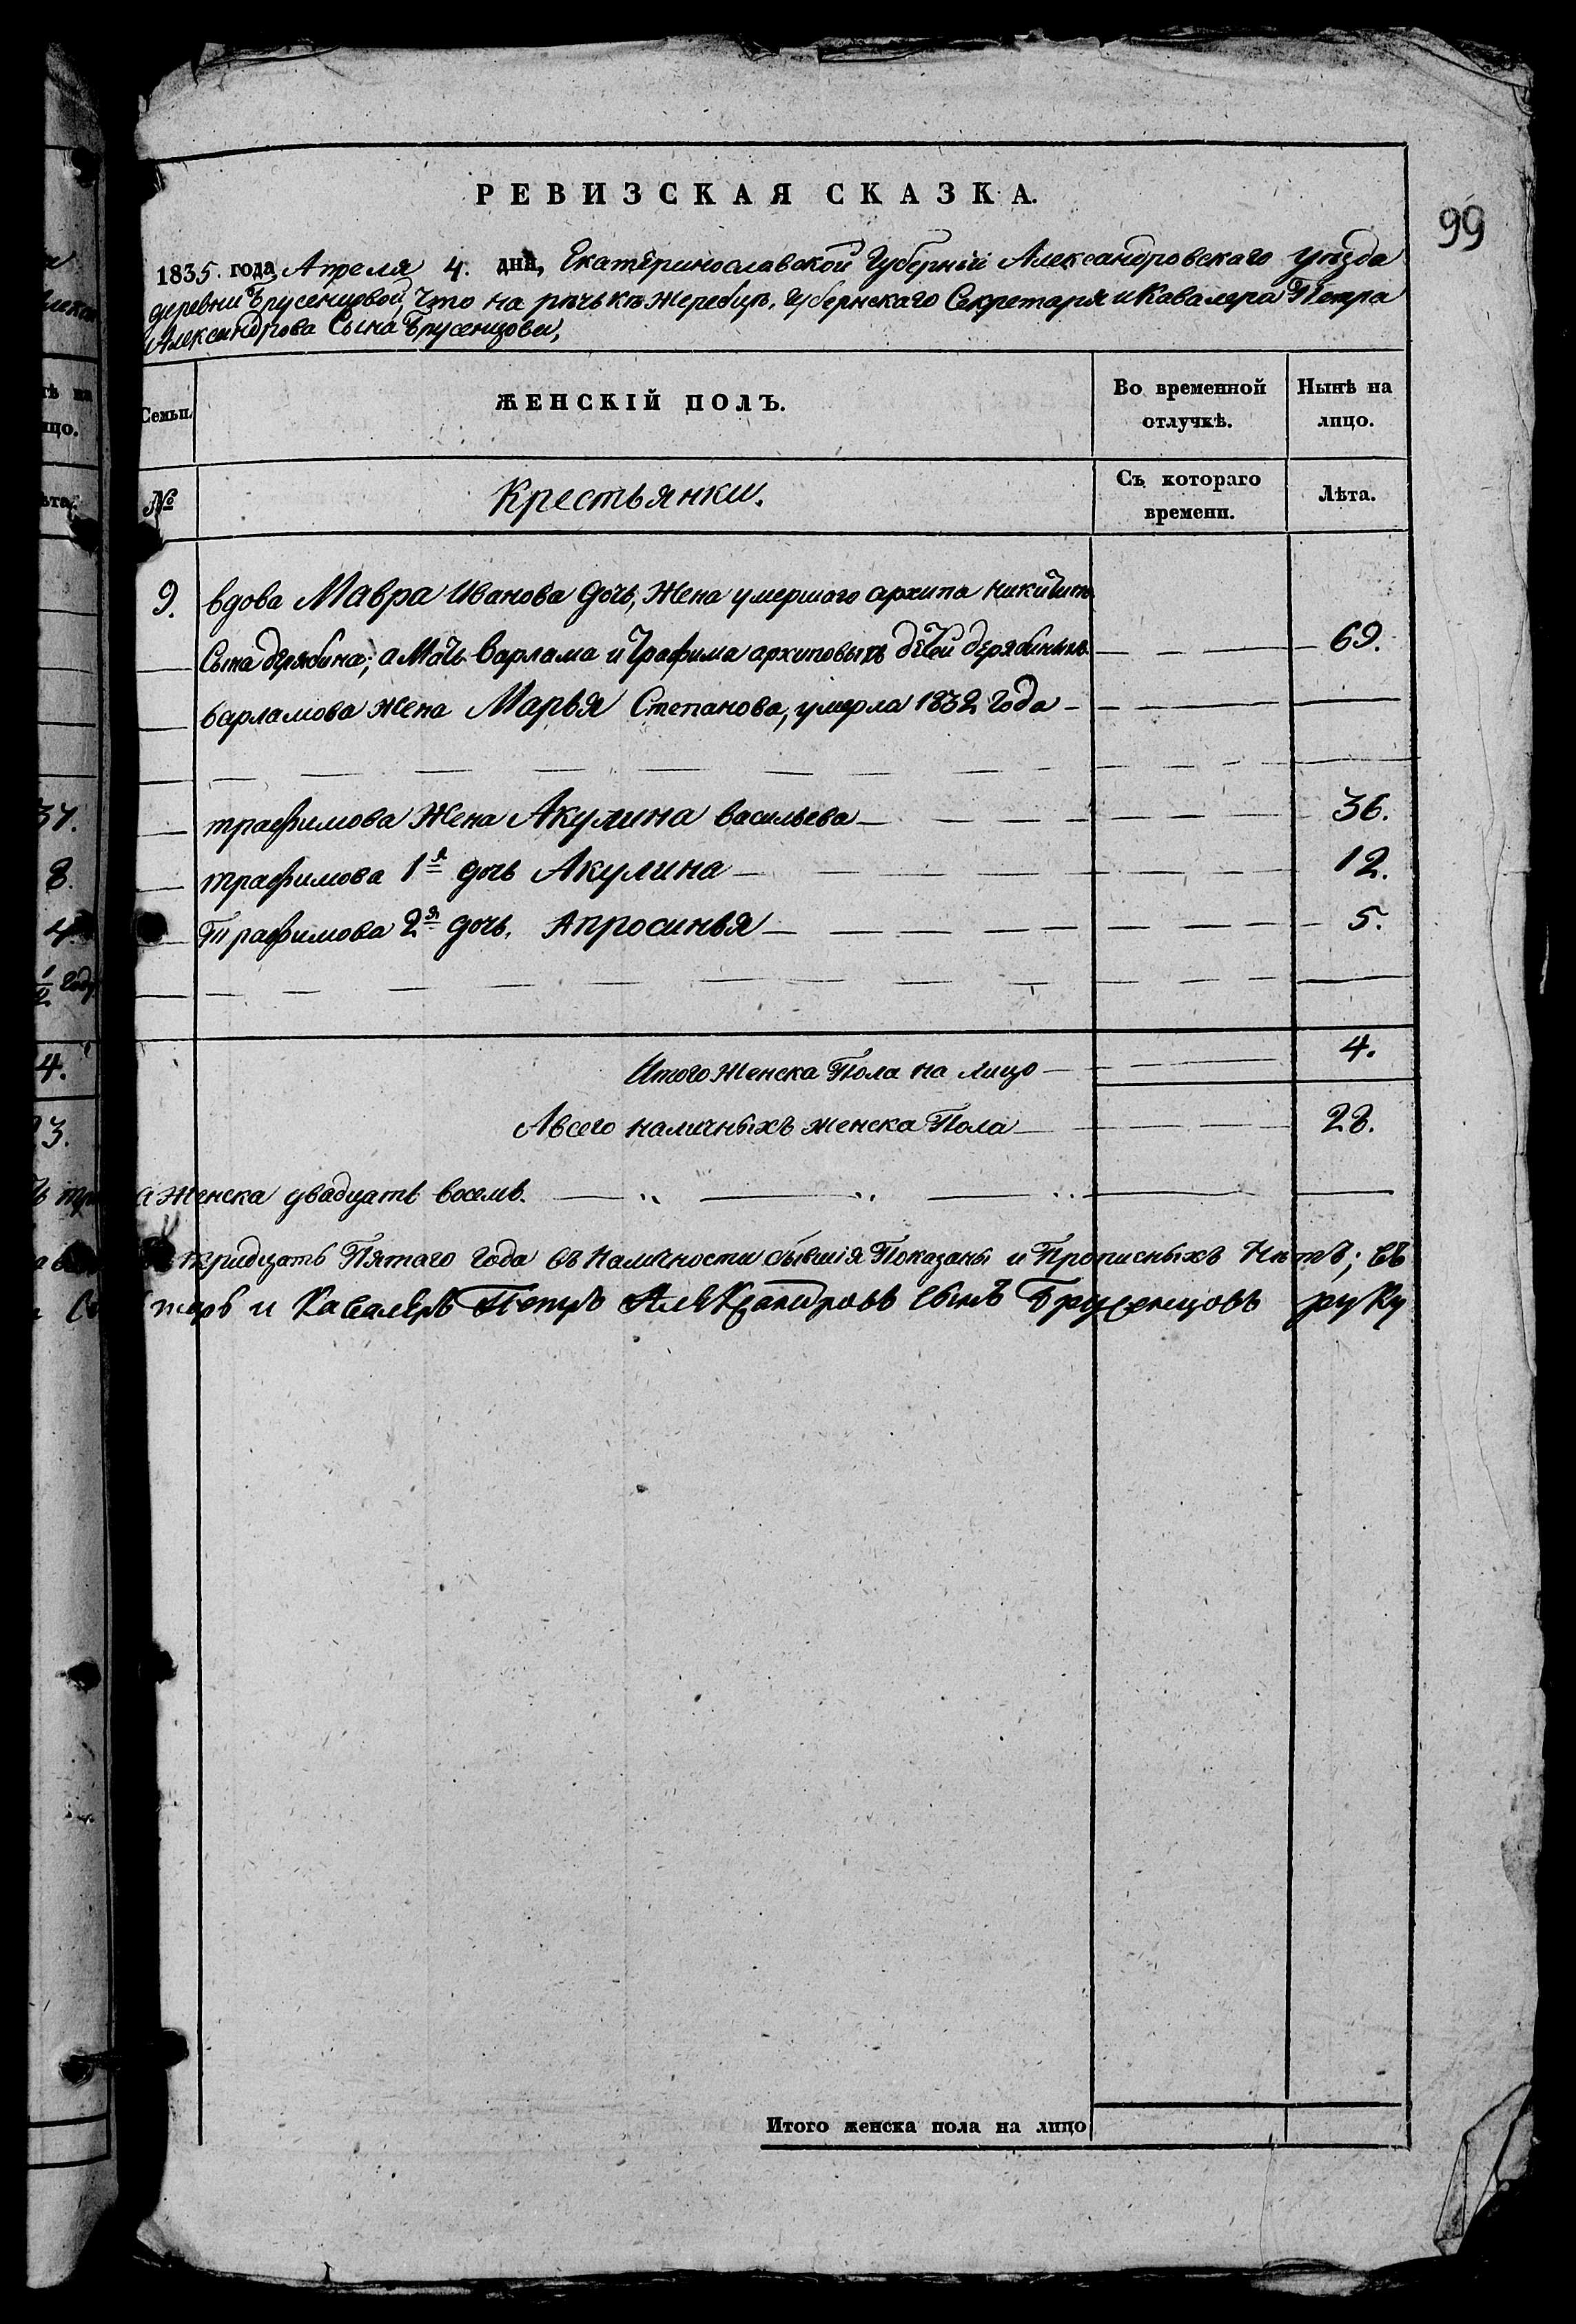 РЕВИЗСКАЯ СКАЗКА.
99
1835. года Апреля 4. дня, Екатеринославской Губерніи Александровскаго уѣзда
деревни Брусенцовой, что на рѣчькѣ Жеребцѣ, Губернскаго Секретаря и Кавалера Петра
Александрова Сына Брусенцова,
Семьи. ЖЕНСКІЙ ПОЛЪ. Во временной отлучкѣ. Нынѣ на лицо.
№ Крестьянки. Съ котораго времени. Лѣта.
9. вдова Мавра Иванова дочь, Жена умершаго архипа никитина
Сына дерябина; а Мать варлама и трафима архиповыхъ дѣтей дерябиныхъ 69.
варламова жена Марья Степанова, умерла 1832 года
трафимова Жена Акулина васильева 36.
трафимова 1я дочь Акулина 12.
Трафимова 2я дочь. Апросинья 5.
Итого Женска Пола на лицо 4.
А всего наличныхъ женска Пола 28.
а Женска двадцать восемь.
тридцать Пятаго года въ наличности бывшія Показаны и Прописныхъ Нѣтъ; въ
тарь и Кавалеръ Петръ Александровъ сынъ Брусенцовъ руку
Итого женска пола на лицо
37.
8.
4.
1/2 году
4.
23.